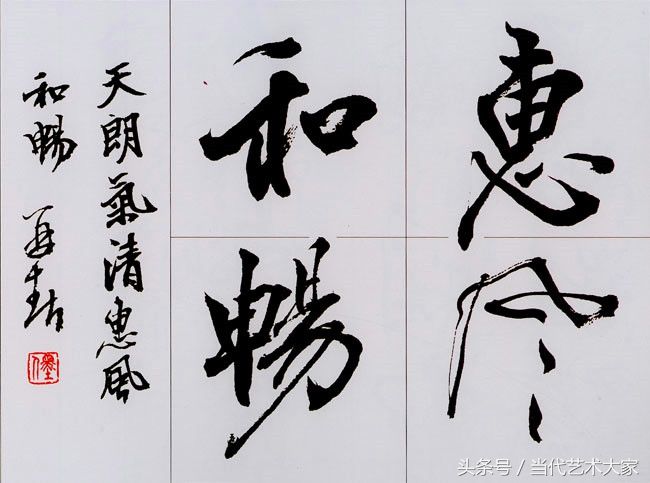 惠风
和暢
天朗氣清惠風
和暢
头条号 / 当代艺术大家